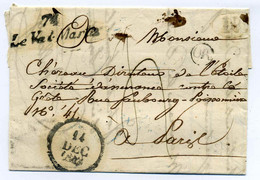 74
Le Val-d'Ajol
Monsieur
Chéreau Directeur de l'Etoile
Société d'assurance contre la
Grêle Rue faubourg-poissonnière
N.° 41
a Paris
14
DEC